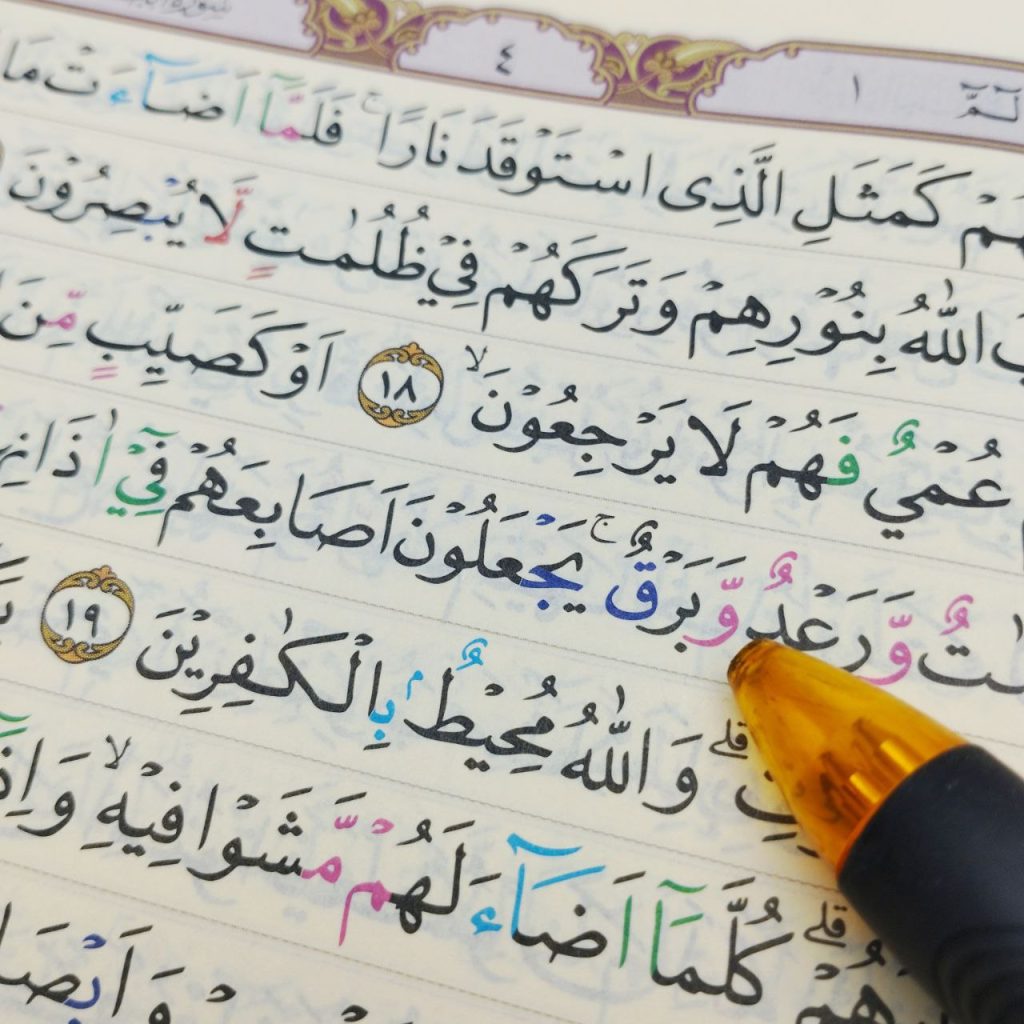 الٓمّٓ ١ ٤
كَمَثَلِ الَّذِى اسْتَوْقَدَ نَارًا ۚ فَلَمَّاۤ اَضَآءَتْ مَا
اللّٰهُ بِنُوْرِهِمْ وَتَرَكَهُمْ فِيْ ظُلُمٰتٍ لَّا يُبْصِرُوْنَ
عُمْيٌ فَهُمْ لَا يَرْجِعُوْنَ ۙ ١٨ اَوْ كَصَيِّبٍ مِّنَ
وَّرَعْدٌ وَّبَرْقٌ ۚ يَجْعَلُوْنَ اَصَابِعَهُمْ فِيْٓ
ۗ وَاللّٰهُ مُحِيْطٌۢ بِالْكٰفِرِيْنَ ١٩
ۗ كُلَّمَآ اَضَاۤءَ لَهُمْ مَّشَوْا فِيْهِ ۙ